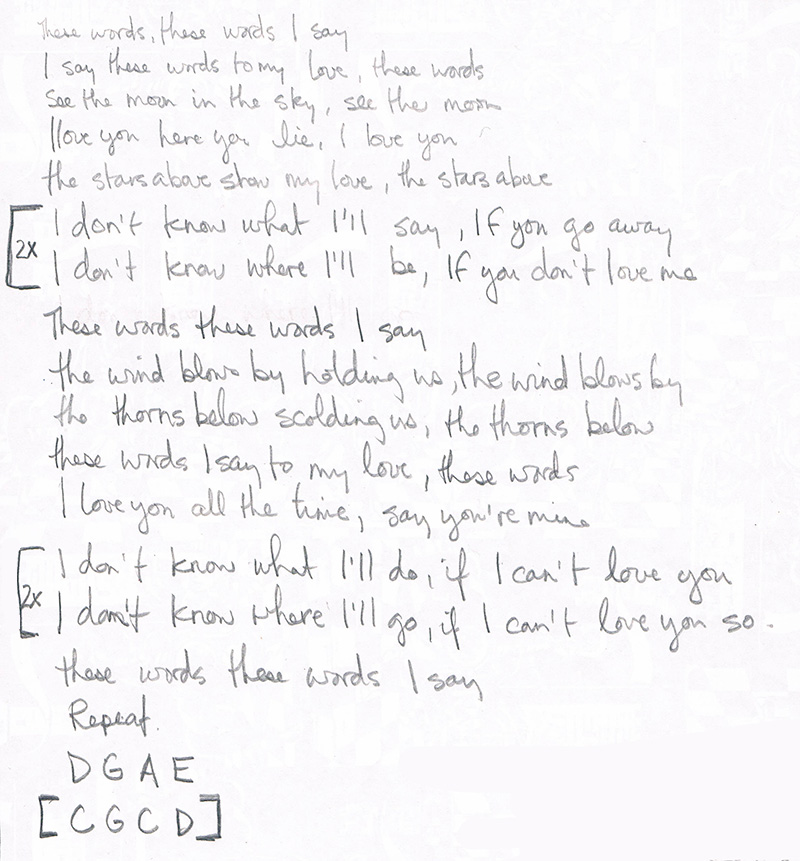 These words, these words I say
I say these words to my love, these words
See the moon in the sky, see the moon
I love you here you lie, I love you
the stars above show my love, the stars above
I don't know what I'll say, If you go away
2X
I don't know where I'll be, If you don't love me
These words these words I say
the wind blows by holding us, the wind blows by
the thorns below scolding us, the thorns below
these words I say to my love, these words
I love you all the time, say you're mine
I don't know what I'll do, if I can't love you
2X
I don't know where I'll go, if I can't love you so.
these words these words I say
Repeat.
D G A E
[C G C D]